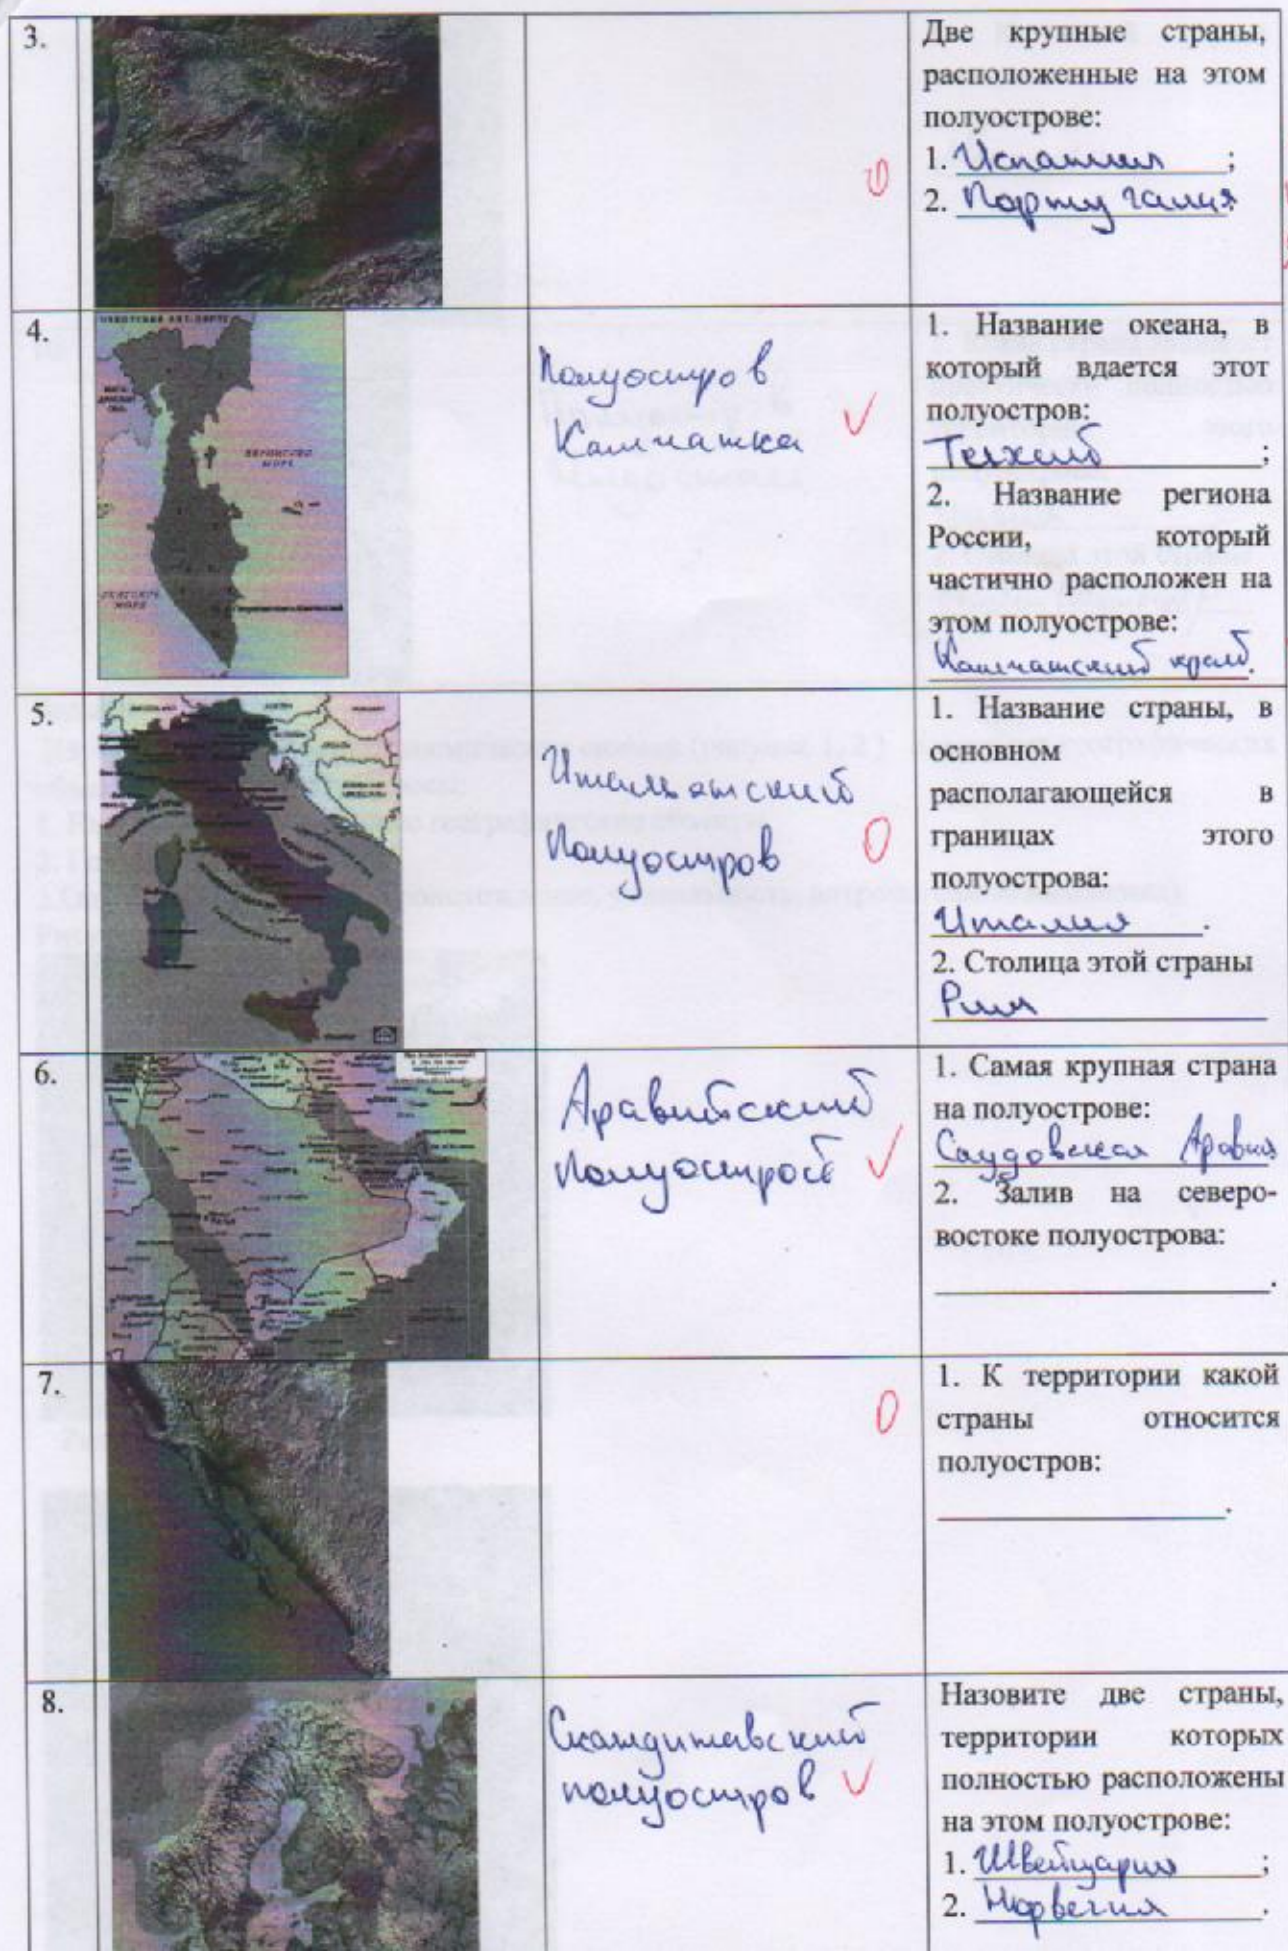 3.
Две крупные страны,
расположенные на этом
полуострове:
1. Испания ;
2. Португалия.
4.
Полуостров
Камчатка
БЕРИНГОВО
МОРЕ
ОХОТСКОЕ
МОРЕ
1. Название океана, в
который вдается этот
полуостров:
Тихий ;
2. Название региона
России, который
частично расположен на
этом полуострове:
Камчатский край.
5.
Итальянский
полуостров
1. Название страны, в
основном
располагающейся в
границах этого
полуострова:
Италия .
2. Столица этой страны
Рим
6.
Аравийский
полуостров
1. Самая крупная страна
на полуострове:
Саудовская Аравия
2. Залив на северо-
востоке полуострова:
.
7.
1. К территории какой
страны относится
полуостров:
.
8.
Скандинавский
полуостров
Назовите две страны,
территории которых
полностью расположены
на этом полуострове:
1. Швейцария ;
2. Норвегия .